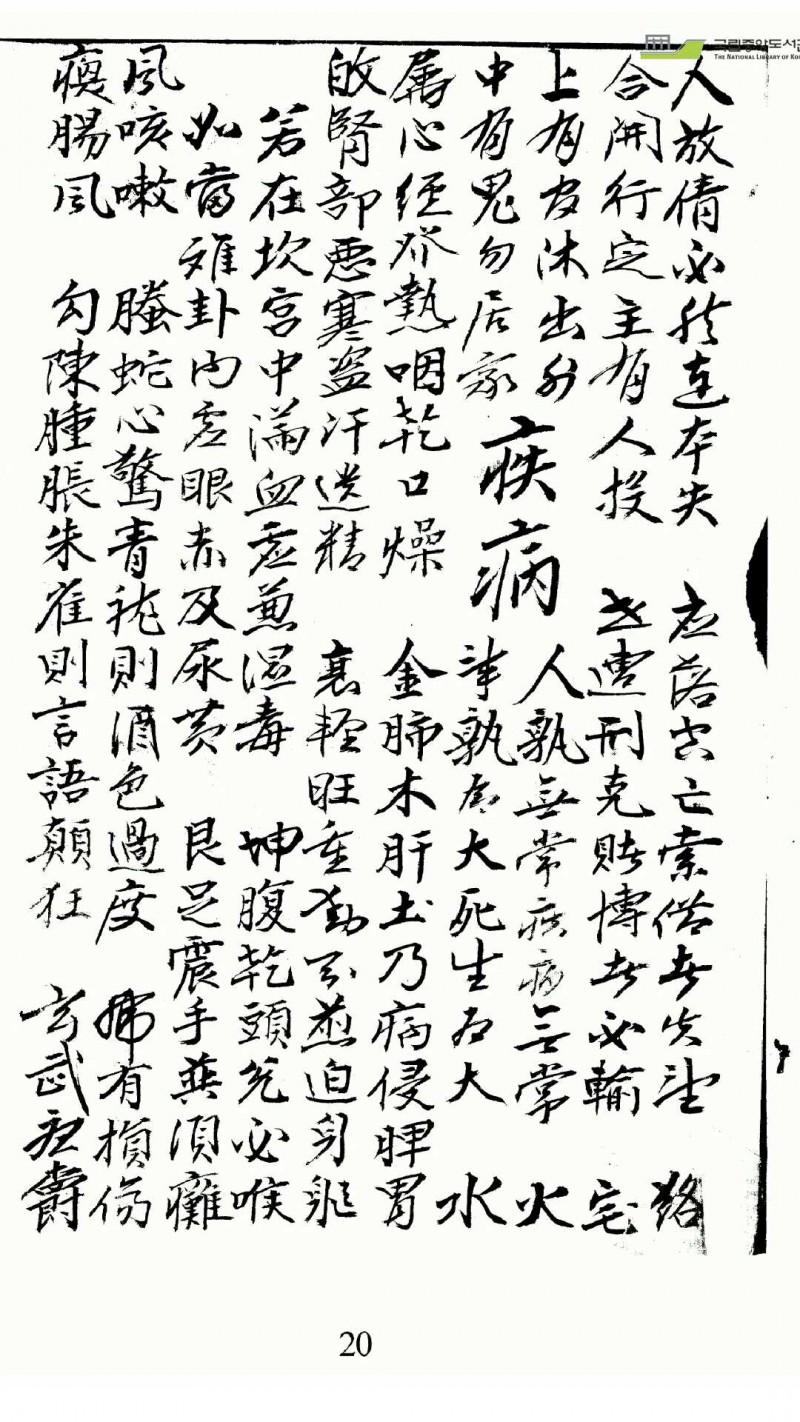 국립중앙도서관
THE NATIONAL LIBRARY OF KOREA
人放債必然連本失 應落空亡索借者失望 貉
合開行定主有人投 世遭刑克賭博者必輸 宅
上有官休出外 人孰無常疾病無常 火
中有鬼勿居家 疾病 事孰為大死生為大 水
屬心經發熱咽乾口燥 金肺木肝土乃病侵脾胃
故腎部惡寒盜汗遺精 衰輕旺重動 煎迫身
若在坎宮中滿血虛兼濕毒 坤腹乾頭兌必喉
如當離卦內虛眼赤及尿黃 艮足震手巽須癱
風咳嗽 螣蛇心驚青龍則酒色過度 虎有損傷
瘓腸風 勾陳腫脹朱雀則言語顛狂 玄武
20